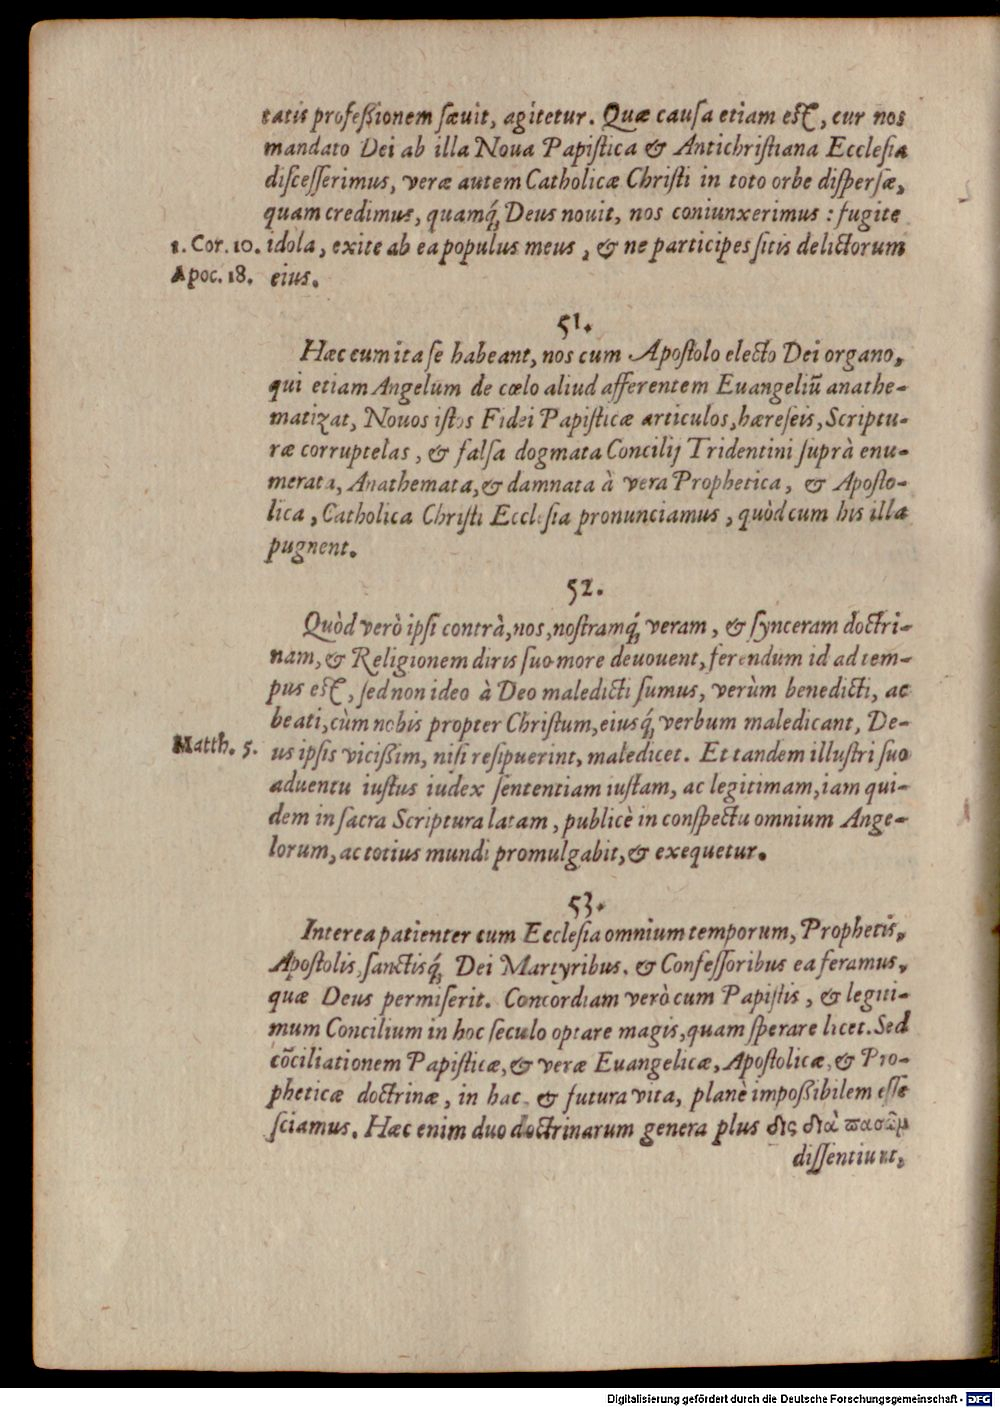 tatis professionem sæuit, agitetur. Quæ causa etiam est, cur nos
mandato Dei ab illa Noua Papistica & Antichristiana Ecclesia
discesserimus, veræ autem Catholicæ Christi in toto orbe dispersæ,
quam credimus, quamq́; Deus nouit, nos coniunxerimus : fugite
1. Cor. 10. idola, exite ab ea populus meus, & ne participes sitis delictorum
Apoc. 18. eius.
51.
Hæc cum ita se habeant, nos cum Apostolo electo Dei organo,
qui etiam Angelum de cœlo aliud afferentem Euangeliũ anathe-
matizat, Nouos istos Fidei Papisticæ articulos, hæreseis, Scriptu-
ræ corruptelas, & falsa dogmata Concilij Tridentini suprà enu-
merata, Anathemata, & damnata à vera Prophetica, & Aposto-
lica, Catholica Christi Ecclesia pronunciamus, quòd cum his illa
pugnent.
52.
Quòd verò ipsi contrà, nos, nostramq́; veram, & synceram doctri-
nam, & Religionem diris suo more deuouent, ferendum id ad tem-
pus est, sed non ideo à Deo maledicti sumus, verùm benedicti, ac
beati, cùm nobis propter Christum, eiusq́; verbum maledicant, De-
Matth. 5. us ipsis vicißim, nisi resipuerint, maledicet. Et tandem illustri suo
aduentu iustus iudex sententiam iustam, ac legitimam, iam qui-
dem in sacra Scriptura latam, publicè in conspectu omnium Ange-
lorum, ac totius mundi promulgabit, & exequetur.
53.
Interea patienter cum Ecclesia omnium temporum, Prophetis,
Apostolis, sanctisq́; Dei Martyribus, & Confessoribus ea feramus,
quæ Deus permiserit. Concordiam verò cum Papistis, & legiti-
mum Concilium in hoc seculo optare magis, quam sperare licet. Sed
cõciliationem Papisticæ, & veræ Euangelicæ, Apostolicæ, & Pro-
pheticæ doctrinæ, in hac & futura vita, planè impoßibilem esse
sciamus. Hæc enim duo doctrinarum genera plus δὶς διὰ πασῶμ
dissentiunt,
Digitalisierung gefördert durch die Deutsche Forschungsgemeinschaft - DFG